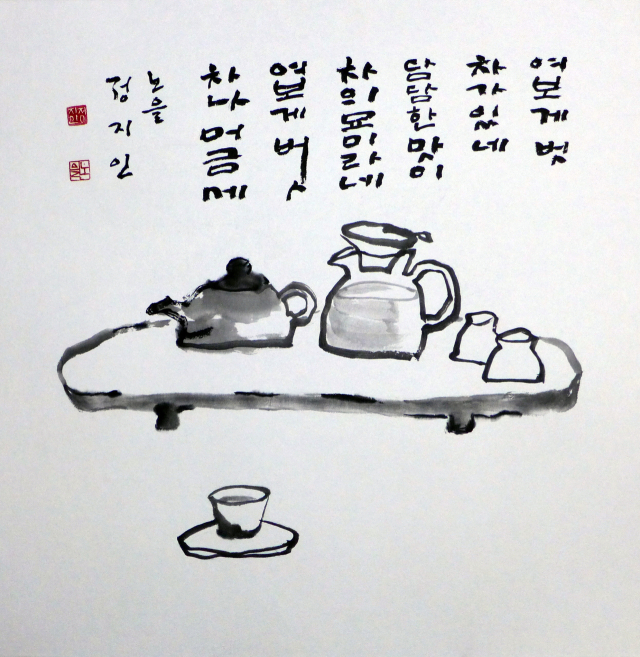 여보게 벗
차가 있네
담담한 맛이
차의 묘미라네
여보게 벗
차나 머금세
노을
정지인